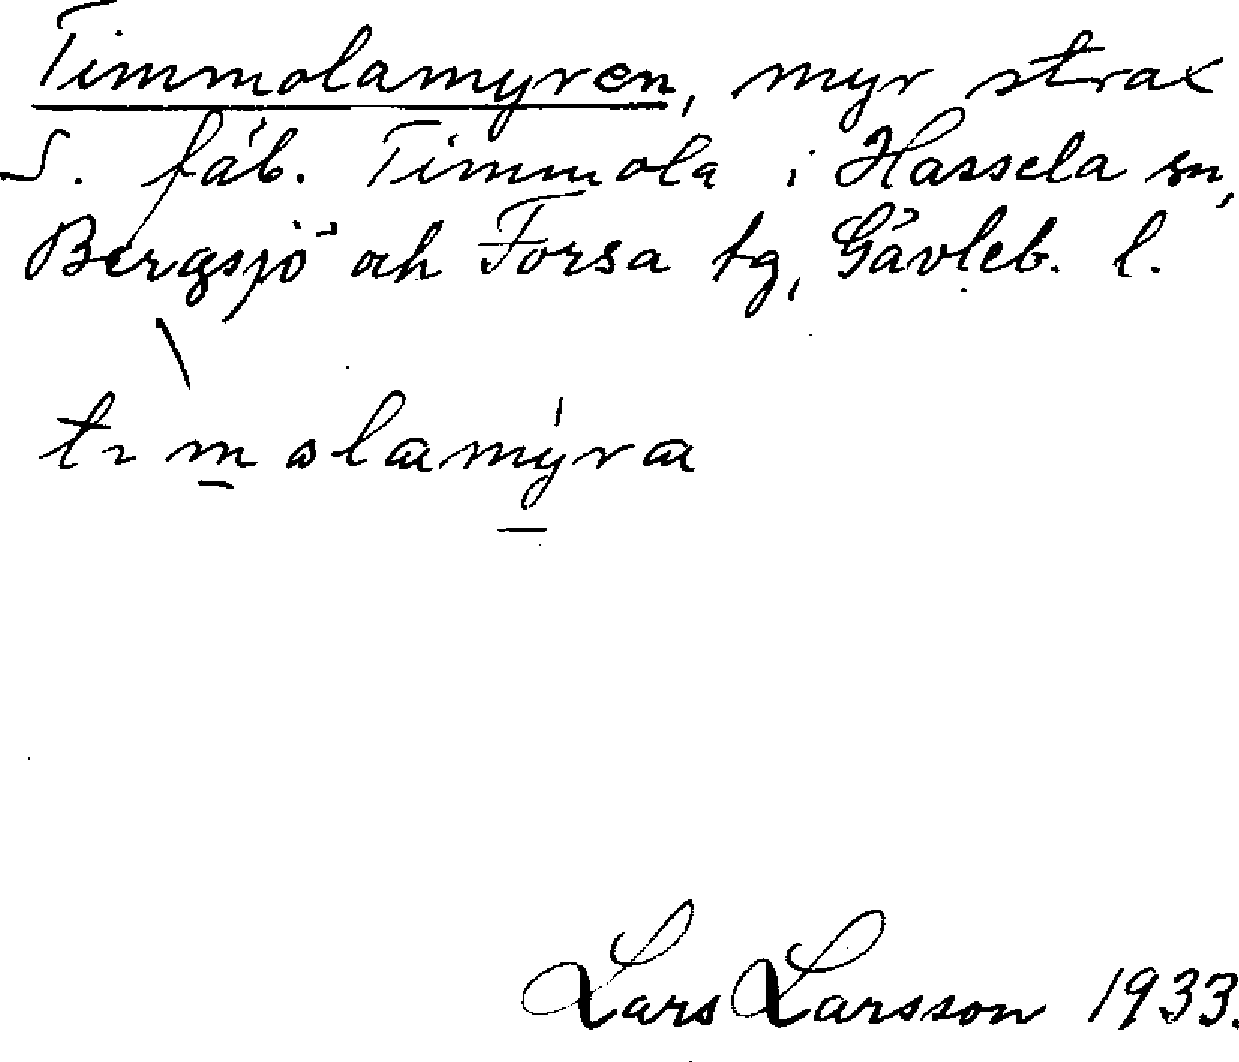 Timmolamyren, myr strax
S. fäb. Timmola i Hassela sn,
Bergsjö och Forsa tg, Gävleb. l.
Lars Larsson 1933.